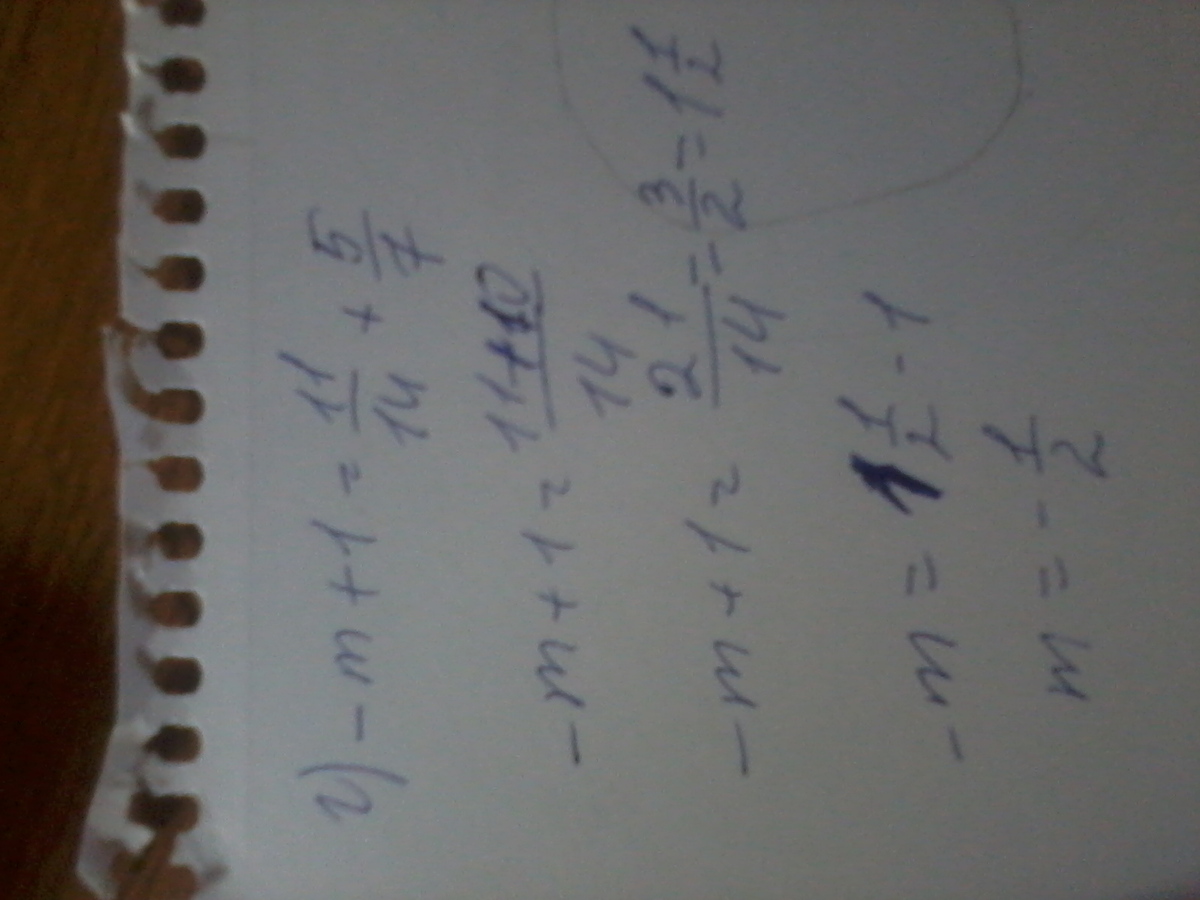 г) - m + 1 = 11/14 + 5/7
- m + 1 = 11+10/14
- m + 1 = 21/14 = 3/2 = 1 1/2
- m = 1 1/2 - 1
m = - 1/2